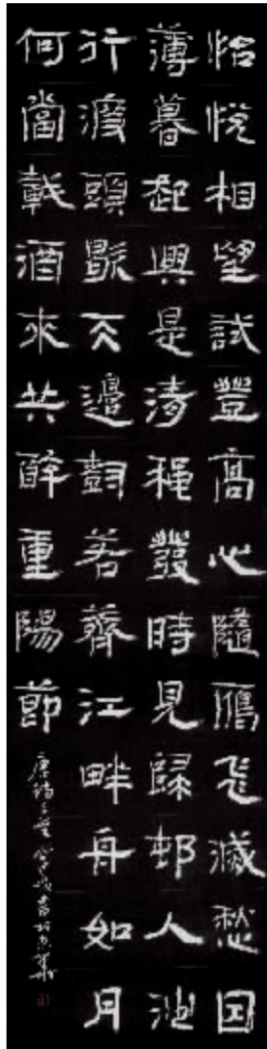 怡悅相望試登高心隨鴈飛滅愁因
薄暮起興是清穐發時見歸邨人沙
行渡頭歇天邊樹若薺江畔舟如月
何當載酒來共醉重陽節
唐詩